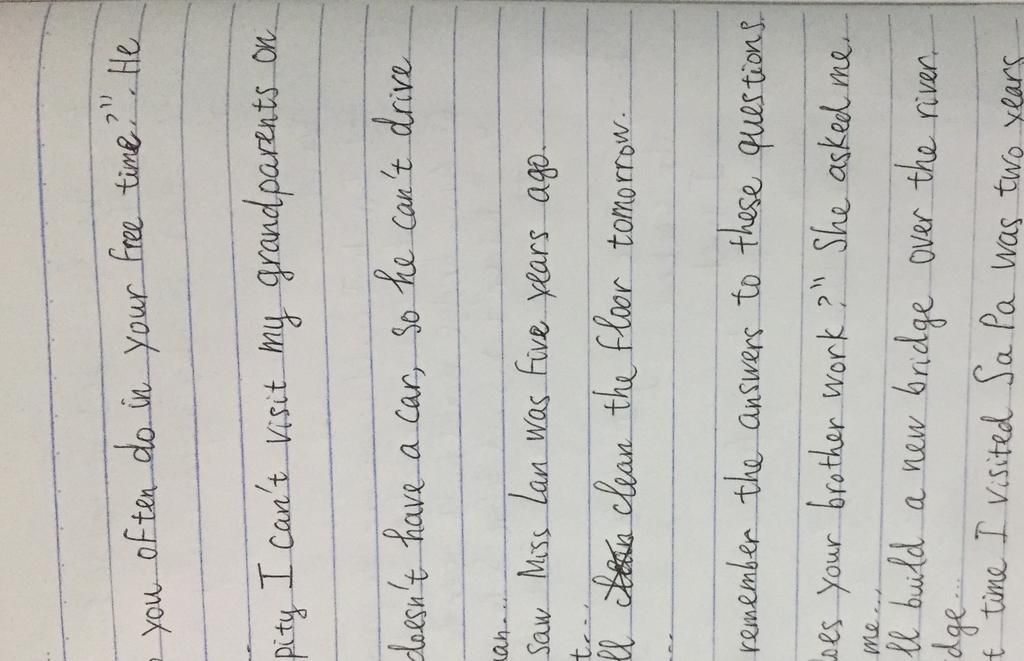 you often do in your free time?". He
pity I can't visit my grandparents on
doesn't have a car, so he can't drive
saw Miss Lan was five years ago.
clean the floor tomorrow.
remember the answers to these questions.
your brother work?" She asked me.
me...
build a new bridge over the river.
time I visited Sa Pa was two years